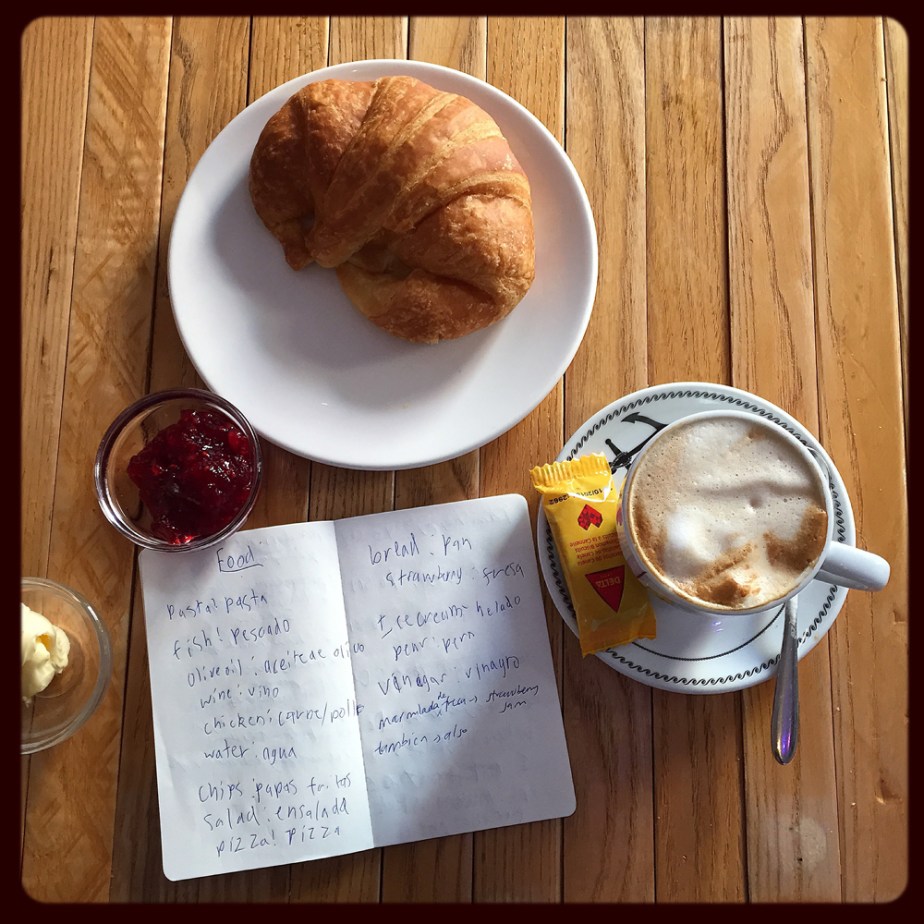 Food
pasta: pasta
fish: pescado
olive oil: aceite de olivo
wine: vino
chicken: carne/pollo
water: agua
chips: papas fritas
salad: ensalada
pizza: pizza
bread: pan
strawberry: fresa
Icecream: helado
pear: pera
vinagar: vinagre
marmalada de fresa → strawberry
jam
tambien → also
DELTA